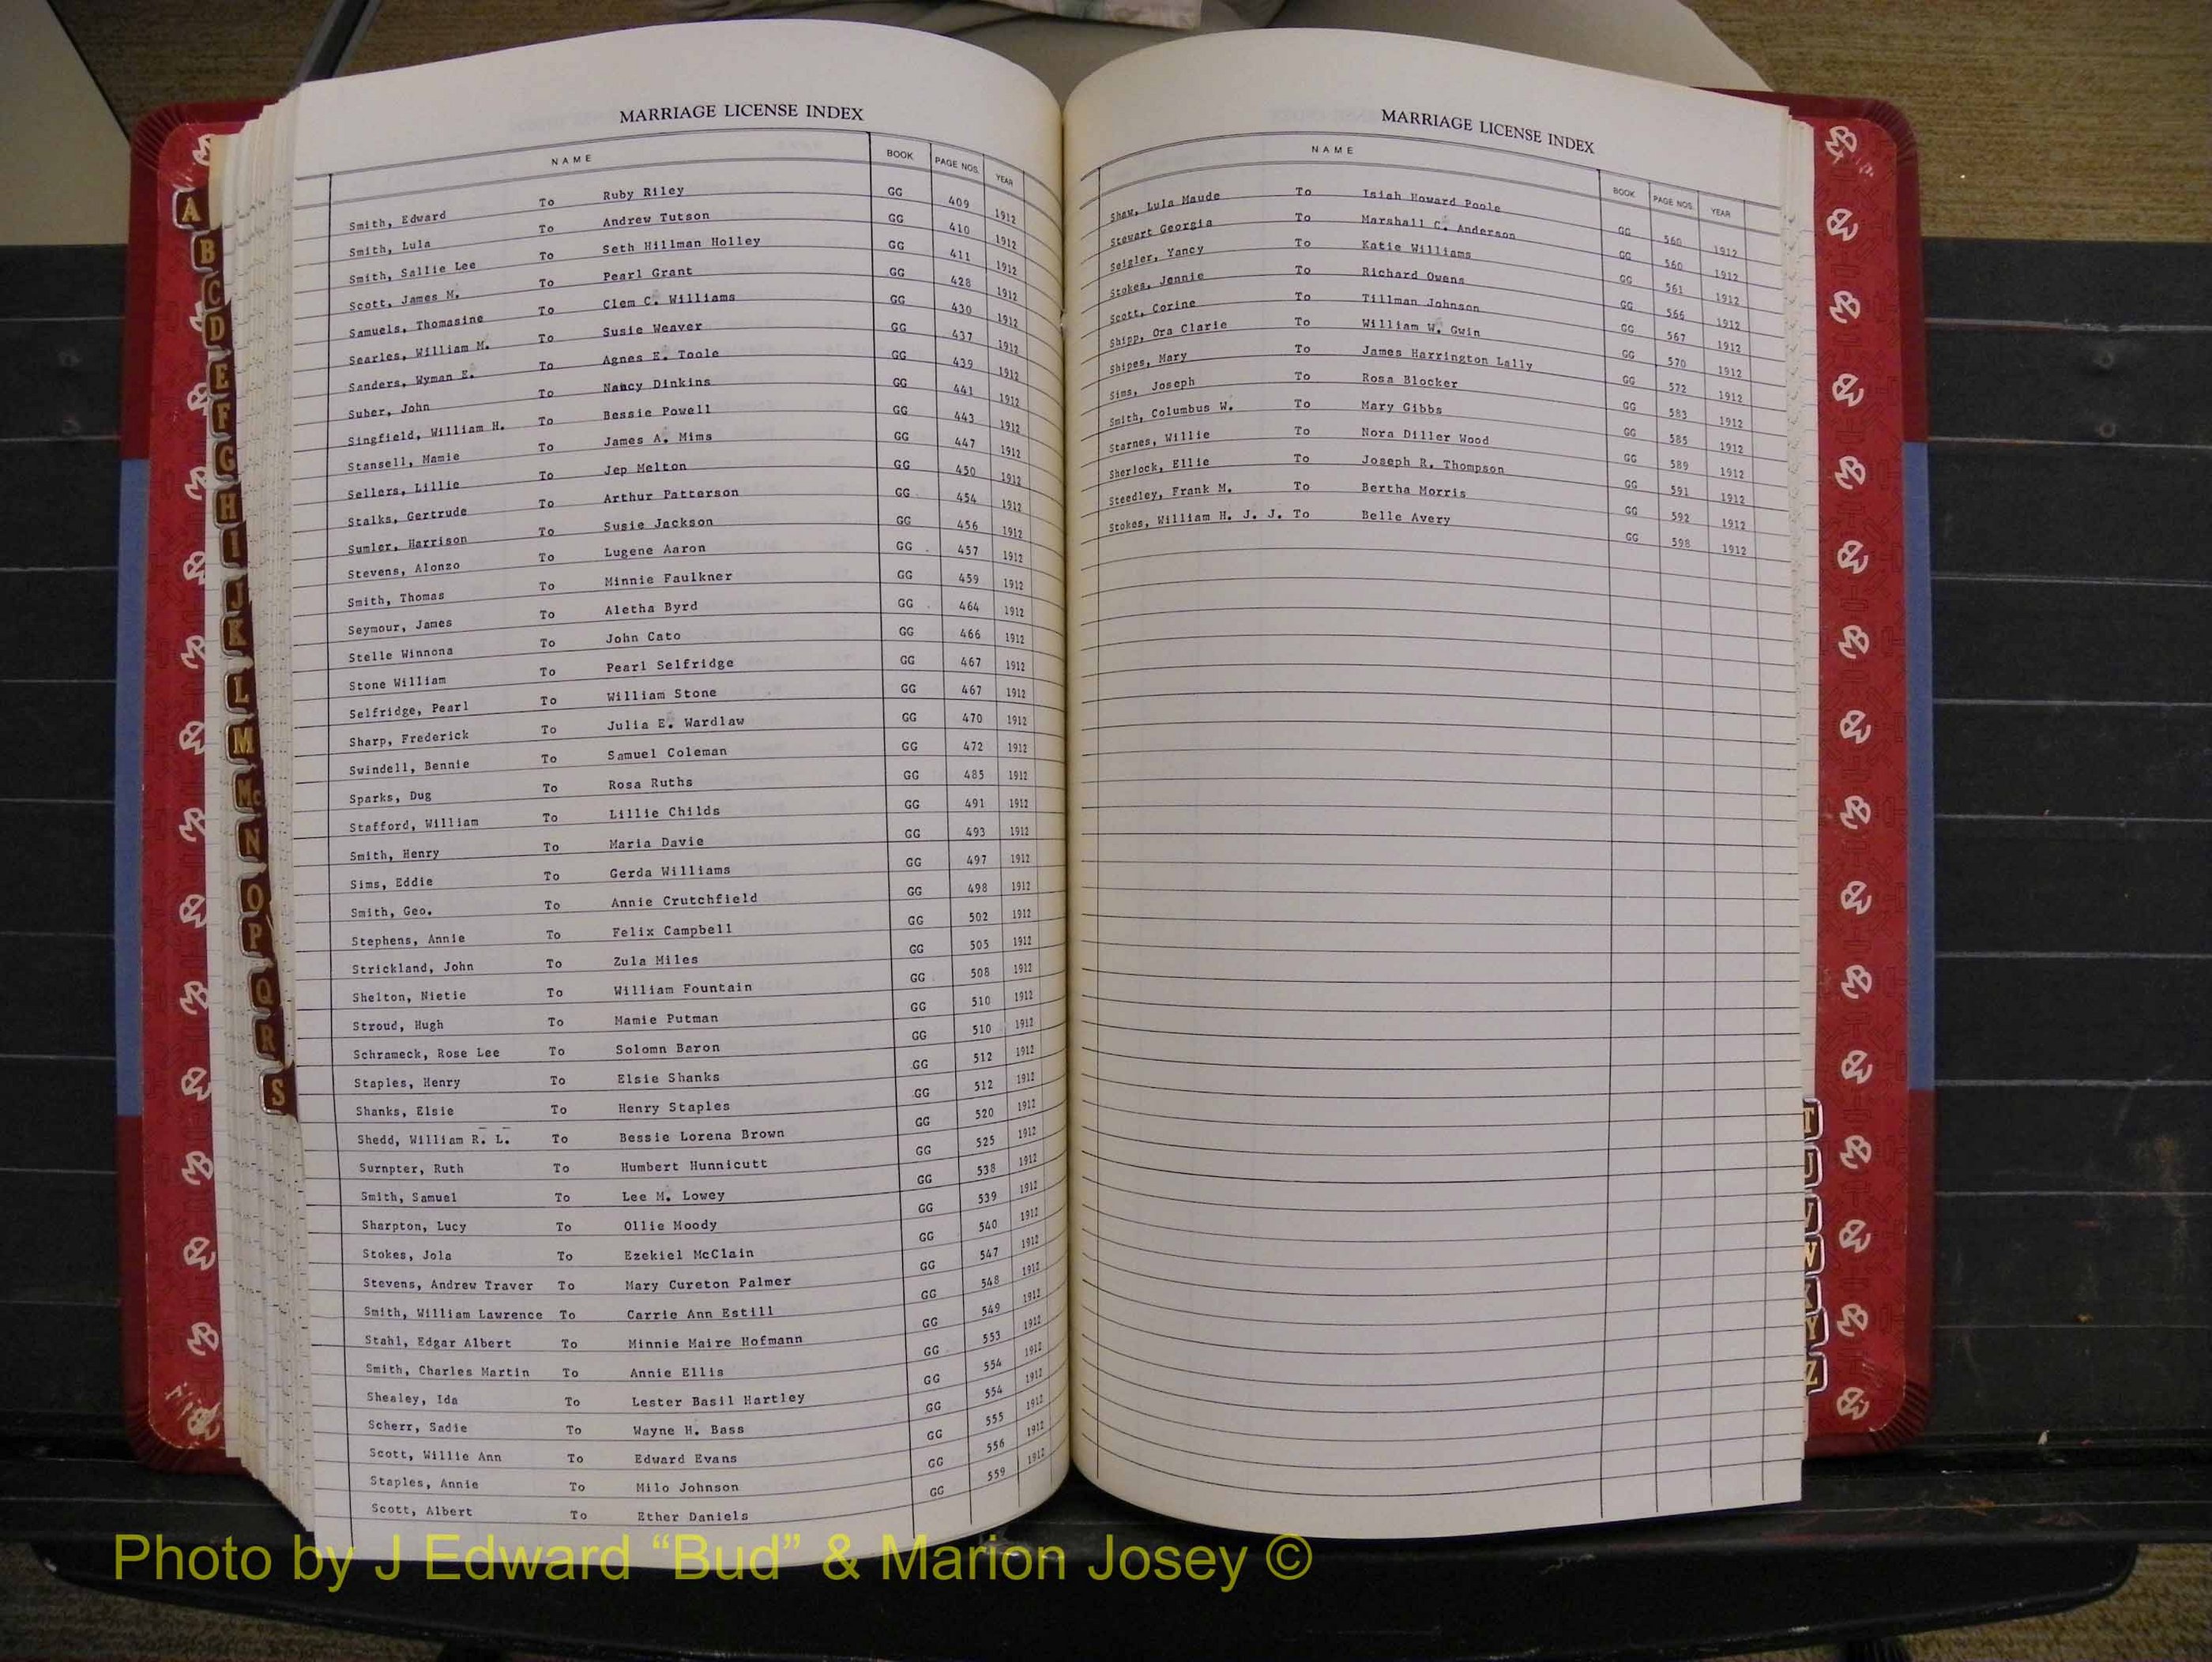 MARRIAGE LICENSE INDEX
NAME BOOK PAGE NOS. YEAR
Smith, Edward To Ruby Riley GG 409 1912
Smith, Lula To Andrew Tutson GG 410 1912
Smith, Sallie Lee To Seth Hillman Holley GG 411 1912
Scott, James M. To Pearl Grant GG 428 1912
Samuels, Thomasine To Clem C. Williams GG 430 1912
Searles, William M. To Susie Weaver GG 437 1912
Sanders, Wyman E. To Agnes E. Toole GG 439 1912
Suber, John To Nancy Dinkins GG 441 1912
Singfield, William H. To Bessie Powell GG 443 1912
Stansell, Mamie To James A. Mims GG 447 1912
Sellers, Lillie To Jep Melton GG 450 1912
Stalks, Gertrude To Arthur Patterson GG 454 1912
Sumler, Harrison To Susie Jackson GG 456 1912
Stevens, Alonzo To Lugene Aaron GG 457 1912
Smith, Thomas To Minnie Faulkner GG 459 1912
Seymour, James To Aletha Byrd GG 464 1912
Stelle Winnona To John Cato GG 466 1912
Stone William To Pearl Selfridge GG 467 1912
Selfridge, Pearl To William Stone GG 467 1912
Sharp, Frederick To Julia E. Wardlaw GG 470 1912
Swindell, Bennie To Samuel Coleman GG 472 1912
Sparks, Dug To Rosa Ruths GG 485 1912
Stafford, William To Lillie Childs GG 491 1912
Smith, Henry To Maria Davie GG 493 1912
Sims, Eddie To Gerda Williams GG 497 1912
Smith, Geo. To Annie Crutchfield GG 498 1912
Stephens, Annie To Felix Campbell GG 502 1912
Strickland, John To Zula Miles GG 505 1912
Shelton, Nietie To William Fountain GG 508 1912
Stroud, Hugh To Mamie Putman GG 510 1912
Schrameck, Rose Lee To Solomn Baron GG 510 1912
Staples, Henry To Elsie Shanks GG 512 1912
Shanks, Elsie To Henry Staples GG 512 1912
Shedd, William R. L. To Bessie Lorena Brown GG 520 1912
Surnpter, Ruth To Humbert Hunnicutt GG 525 1912
Smith, Samuel To Lee M. Lowey GG 538 1912
Sharpton, Lucy To Ollie Moody GG 539 1912
Stokes, Jola To Ezekiel McClain GG 540 1912
Stevens, Andrew Traver To Mary Cureton Palmer GG 547 1912
Smith, William Lawrence To Carrie Ann Estill GG 548 1912
Stahl, Edgar Albert To Minnie Maire Hofmann GG 549 1912
Smith, Charles Martin To Annie Ellis GG 553 1912
Shealey, Ida To Lester Basil Hartley GG 554 1912
Scherr, Sadie To Wayne H. Bass GG 554 1912
Scott, Willie Ann To Edward Evans GG 555 1912
Staples, Annie To Milo Johnson GG 556 1912
Scott, Albert To Ether Daniels GG 559 1912
MARRIAGE LICENSE INDEX
NAME BOOK PAGE NOS. YEAR
Shaw, Lula Maude To Isiah Howard Poole GG 560 1912
Stewart Georgia To Marshall C. Anderson GG 560 1912
Seigler, Yancy To Katie Williams GG 561 1912
Stokes, Jennie To Richard Owens GG 566 1912
Scott, Corine To Tillman Johnson GG 567 1912
Shipp, Ora Clarie To William W. Gwin GG 570 1912
Shipes, Mary To James Harrington Lally GG 572 1912
Sims, Joseph To Rosa Blocker GG 583 1912
Smith, Columbus W. To Mary Gibbs GG 585 1912
Starnes, Willie To Nora Diller Wood GG 589 1912
Sherlock, Ellie To Joseph R. Thompson GG 591 1912
Steedley, Frank M. To Bertha Morris GG 592 1912
Stokes, William H. J. J. To Belle Avery GG 598 1912
A
B
C
D
E
F
G
H
I
J
K
L
M
Mc
N
O
P
Q
R
S
T
U
V
W
X
Y
Z
Photo by J Edward “Bud” & Marion Josey ©